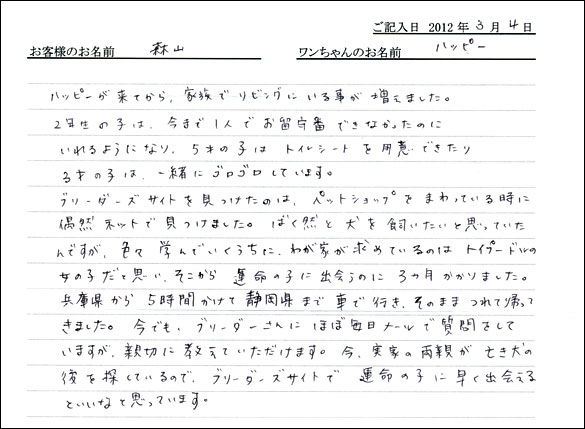 ご記入日 2012年3月4日
お客様のお名前 森山 ワンちゃんのお名前 ハッピー
ハッピーが来てから、家族でリビングにいる事が増えました。
2年生の子は、今まで1人でお留守番できなかったのに
いれるようになり、5才の子はトイレシートを用意できたり
3才の子は、一緒にゴロゴロしています。
ブリーダーズサイトを見つけたのは、ペットショップをまわっている時に
偶然ネットで見つけました。ばく然と犬を飼いたいと思っていた
んですが、色々学んでいくうちに、わが家が求めているのはトイプードルの
女の子だと思い、そこから運命の子に出会うのに3ヵ月かかりました。
兵庫県から5時間かけて静岡県まで車で行き、そのままつれて帰って
きました。今でも、ブリーダーさんにほぼ毎日メールで質問をして
いますが、親切に教えていただけます。今、実家の両親が亡き犬の
後を探しているので、ブリーダーズサイトで運命の子に早く出会える
といいなと思っています。